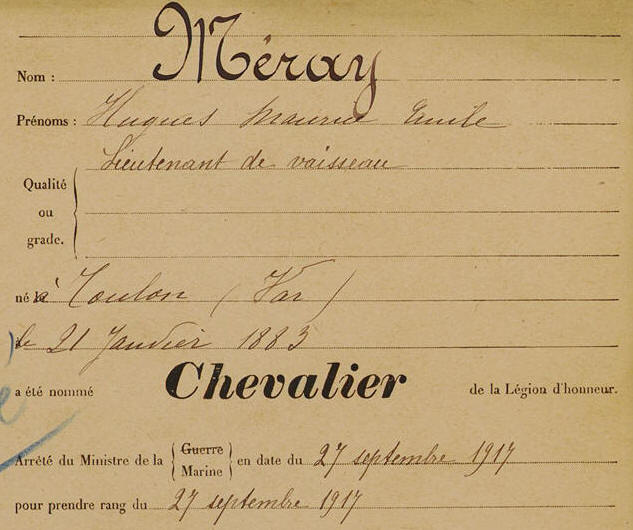 Nom : Méray
Prénoms : Hugues Maurice Emile
Lieutenant de vaisseau
Qualité
ou
grade.
né à Toulon (Var)
le 21 Janvier 1883
a été nommé Chevalier de la Légion d'honneur.
Arrêté du Ministre de la { Guerre
Marine } en date du 27 septembre 1917
pour prendre rang du 27 septembre 1917